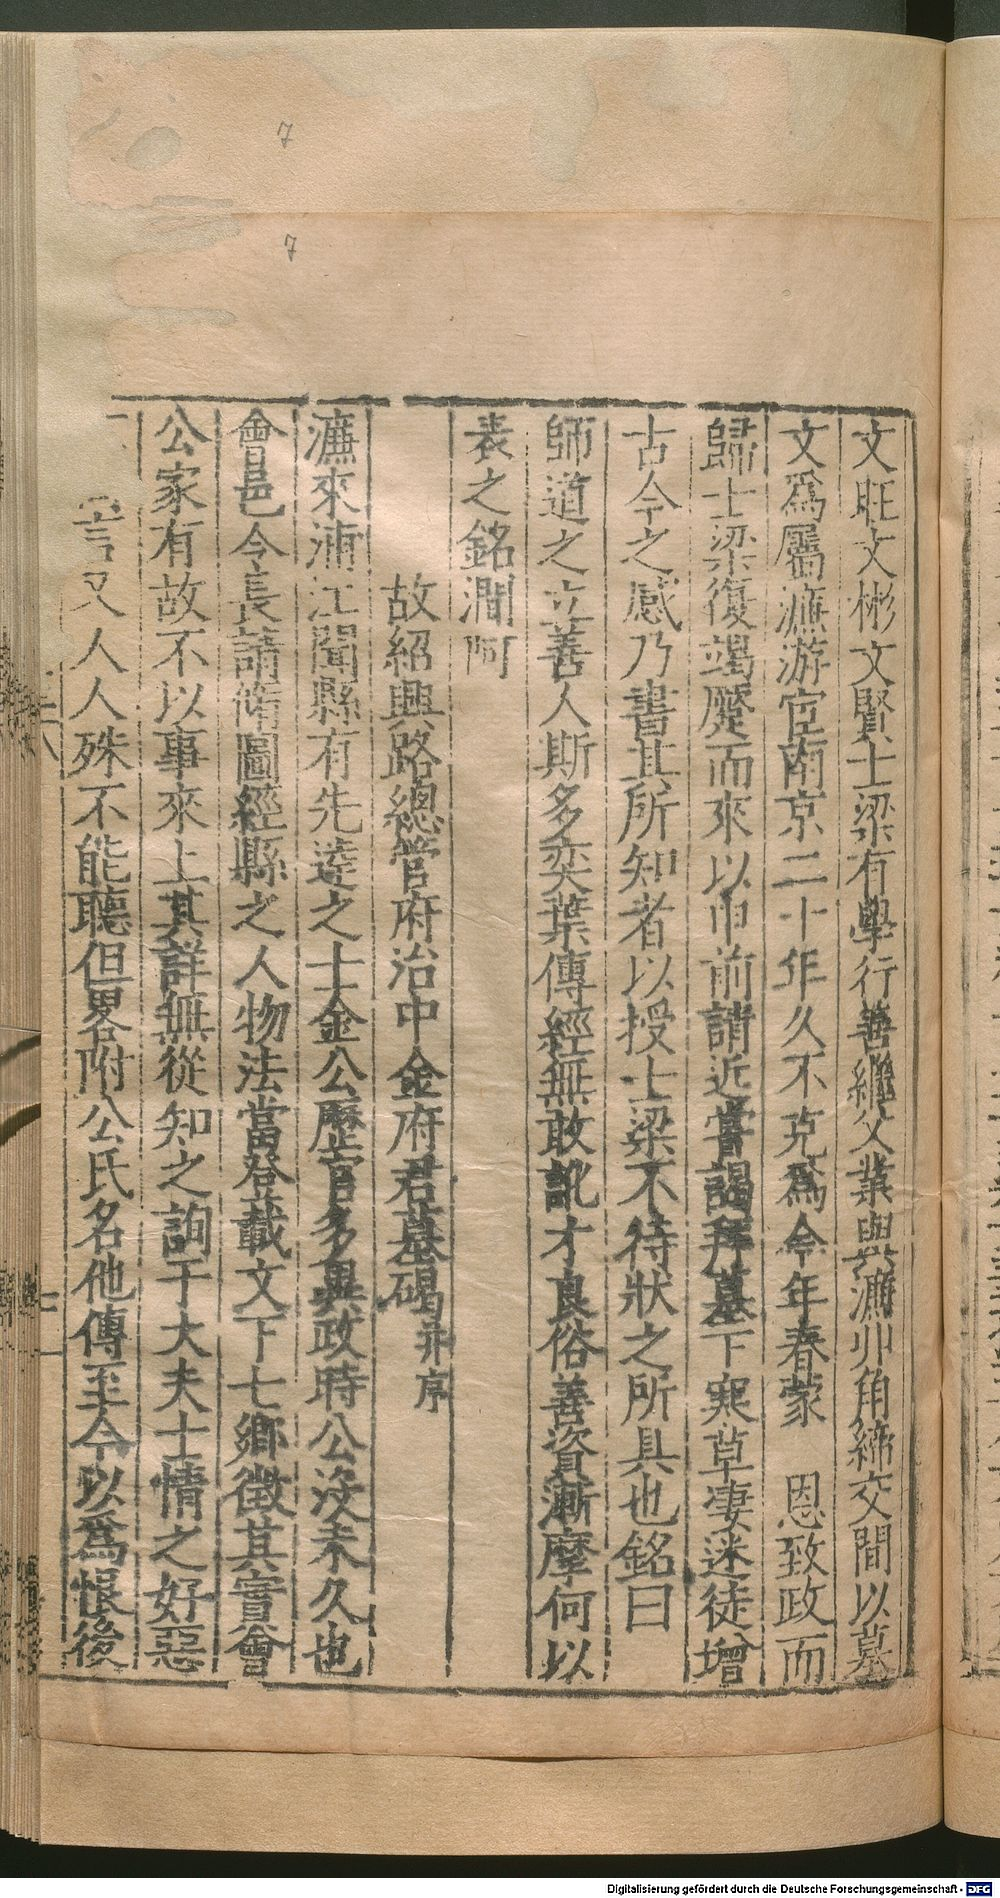 7
7
文旺文彬文賢士梁有學行善繼父業與濂丱角締交間以墓
文爲屬濂游宦南京二十年久不克爲今年春蒙 恩致政而
歸士梁復竭蹷而來以申前請近嘗謁拜墓下寒草凄迷徒增
古今之感乃書其所知者以授士梁不待狀之所具也銘曰
師道之立善人斯多奕葉傳經無敢訛才良俗善資漸摩何以
表之銘澗阿
故紹興路總管府治中金府君墓碣并序
濂來浦江聞縣有先達之士金公歷官多異政時公没未久也
會邑令長請脩圖經縣之人物法當登載文下七鄉徵其實會
公家有故不以事來上其詳無從知之詢于大夫士情之好惡
言又人人殊不能聽但畧附公氏名他傳至今以爲恨後
Digitalisierung gefördert durch die Deutsche Forschungsgemeinschaft - DFG